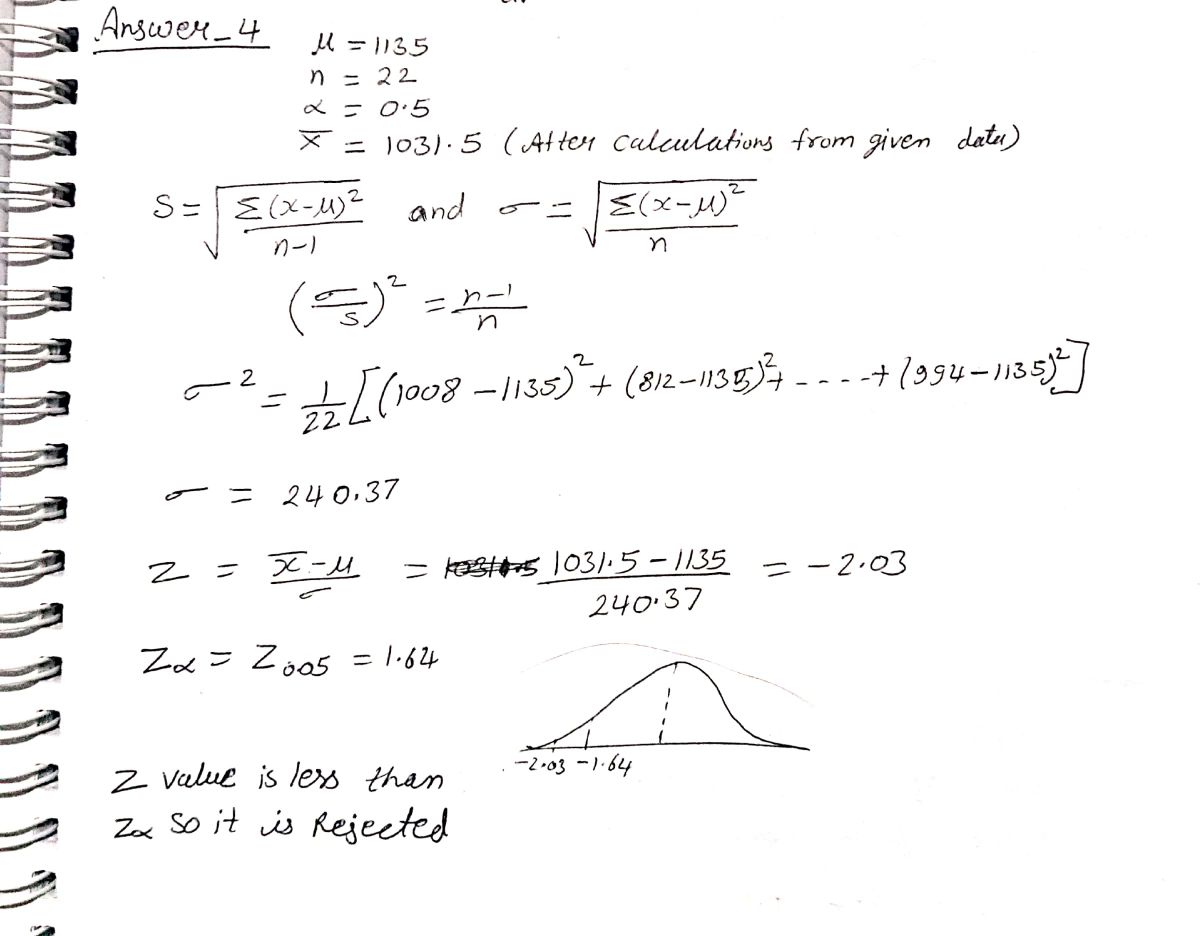 Answer_4
μ = 1135
n = 22
α = 0.5
x̅ = 1031.5 (After calculations from given data)
S = √(Σ(x-μ)²/(n-1)) and σ = √(Σ(x-μ)²/n)
(σ/s)² = (n-1)/n
σ² = 1/22 [(1008-1135)² + (812-1135)² + ----+ (994-1135)²]
σ = 240.37
Z = (x̅-μ)/σ = (1031.5-1135)/240.37 = -2.03
Zα = Z0.05 = 1.64
-2.03 -1.64
Z value is less than
Zα so it is Rejected